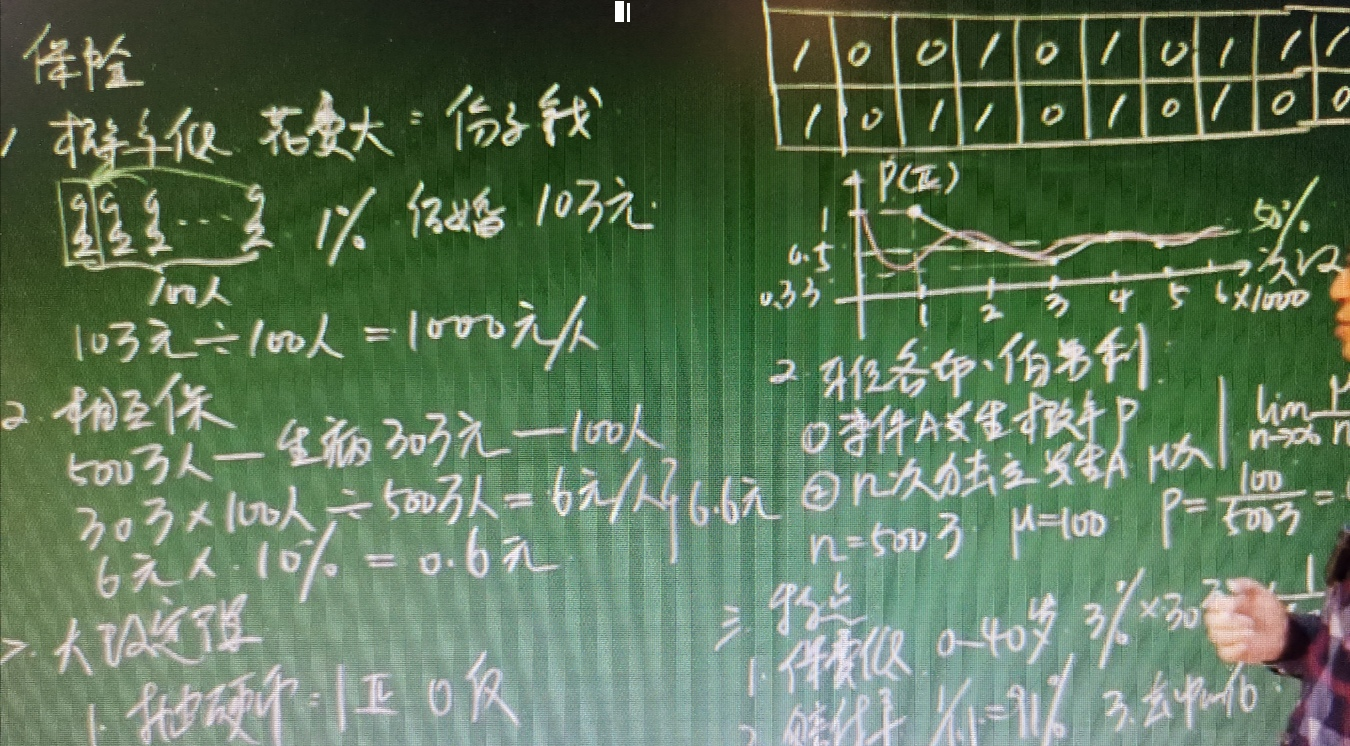 保险
1 概率低 花费大：份子钱
1% 结婚 10万元
100人
10万元÷100人=1000元/人
2. 相互保
500万人—生病30万元—100人
30万×100人÷500万人=6元/人 } 6.6元
6元×10%=0.6元
二. 大数定理
1. 抛硬币：1正 0反
1 0 0 1 0 1 0 1 1 1
1 0 1 1 0 1 0 1 0 0
P(正)
1
0.5
0.33
50%
次数
1 2 3 4 5 6 ×1000
2. 雅各布、伯努利
① 事件A发生概率P
② n次独立发生A μ次
lim μ
n→∞ n
n=500万 μ=100 P=100/500万=
三. 特点
1. 保费低 0~40岁 3% ×30
2. 赔付率 1/1.1=91% 3. 去中心化